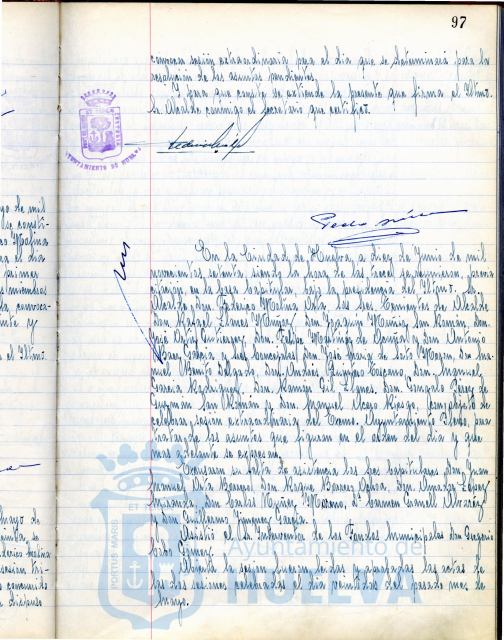 97
convocar sesión extraordinaria para el día que se determinará para la
resolución de los asuntos pendientes.
Y para que conste se extiende la presente que firma el Iltmo.
Sr. Alcalde conmigo el Secretario que certifico.
AYUNTAMIENTO DE HUELVA
En la Ciudad de Huelva, a diez de Junio de mil
novecientos setenta, siendo la hora de las trece, se reunieron, previa
citación en la Casa Capitular, bajo la presidencia del Iltmo. Sr.
Alcalde Don Federico Molina Orta, los Sres. Tenientes de Alcalde
Don Rafael Don Joaquín San Román, Don
José Ortiz Gutiérrez, Don Felipe Martínez de y Don Antonio
García y los Concejales Don José María de Soto Don Ma-
nuel Benito Delgado, Don Andrés Don Manuel
García Rodríguez, Don Ramón Gil Don Gonzalo Pérez de
Guzmán San Román y Don Manuel al objeto de
celebrar sesión extraordinaria del Excmo. Ayuntamiento Pleno, para
tratar de los asuntos que figuran en el orden del día y que
mas adelante se expresan.
Excusaron su falta de asistencia los Sres. Capitulares Don Juan
Manuel Orta Don Roque Don López
Don Carlos Moreno, Dª Carmen Álvarez
y Don Guillermo Jiménez García.
Asistió el Sr. Interventor de los Fondos Municipales Don Gregorio
Gómez.
Abierta la sesión fueron leídas y aprobadas las actas de
las dos sesiones celebradas el día veintidós del pasado mes de
mayo.
PORTUS MARIS ET
Ayuntamiento de
HUELVA